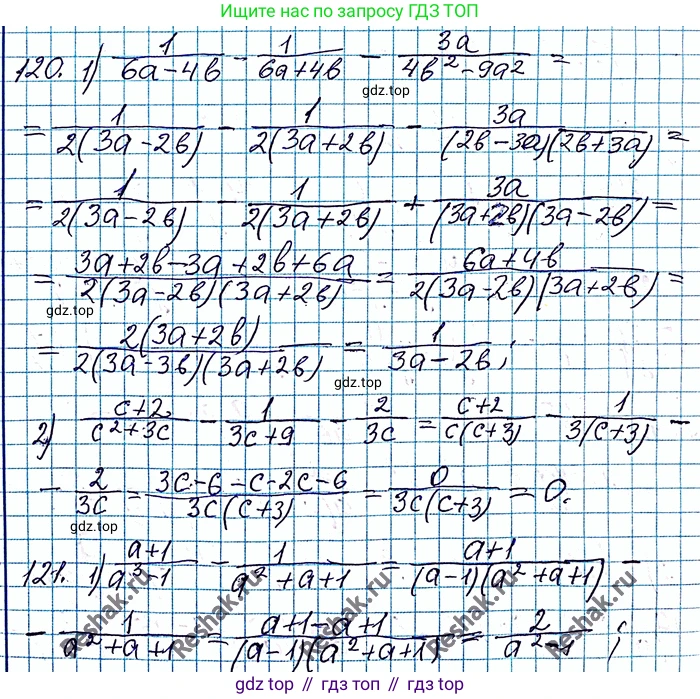 Ищите нас по запросу ГДЗ ТОП
120. 1) 1/(6a-4b) - 1/(6a+4b) - 3a/(4b²-9a²) =
gdz.top
= 1/(2(3a-2b)) - 1/(2(3a+2b)) - 3a/((2b-3a)(2b+3a)) =
= 1/(2(3a-2b)) - 1/(2(3a+2b)) + 3a/((3a+2b)(3a-2b)) =
= (3a+2b-3a+2b+6a)/(2(3a-2b)(3a+2b)) = (6a+4b)/(2(3a-2b)(3a+2b)) =
gdz.top
= 2(3a+2b)/(2(3a-3b)(3a+2b)) = 1/(3a-2b);
gdz.top
2) (c+2)/(c²+3c) - 1/(3c+9) - 2/(3c) = (c+2)/(c(c+3)) - 1/(3(c+3)) -
- 2/(3c) = (3c-6-c-2c-6)/(3c(c+3)) = 0/(3c(c+3)) = 0.
gdz.top
121. 1) (a+1)/(a³-1) - 1/(a²+a+1) = (a+1)/((a-1)(a²+a+1)) -
- 1/(a²+a+1) = (a+1-a+1)/((a-1)(a²+a+1)) = 2/(a²-1);
Reshak.ru
Reshak.ru
Reshak.ru
Reshak.ru
gdz.top // гдз.топ // gdz.top // гдз.топ